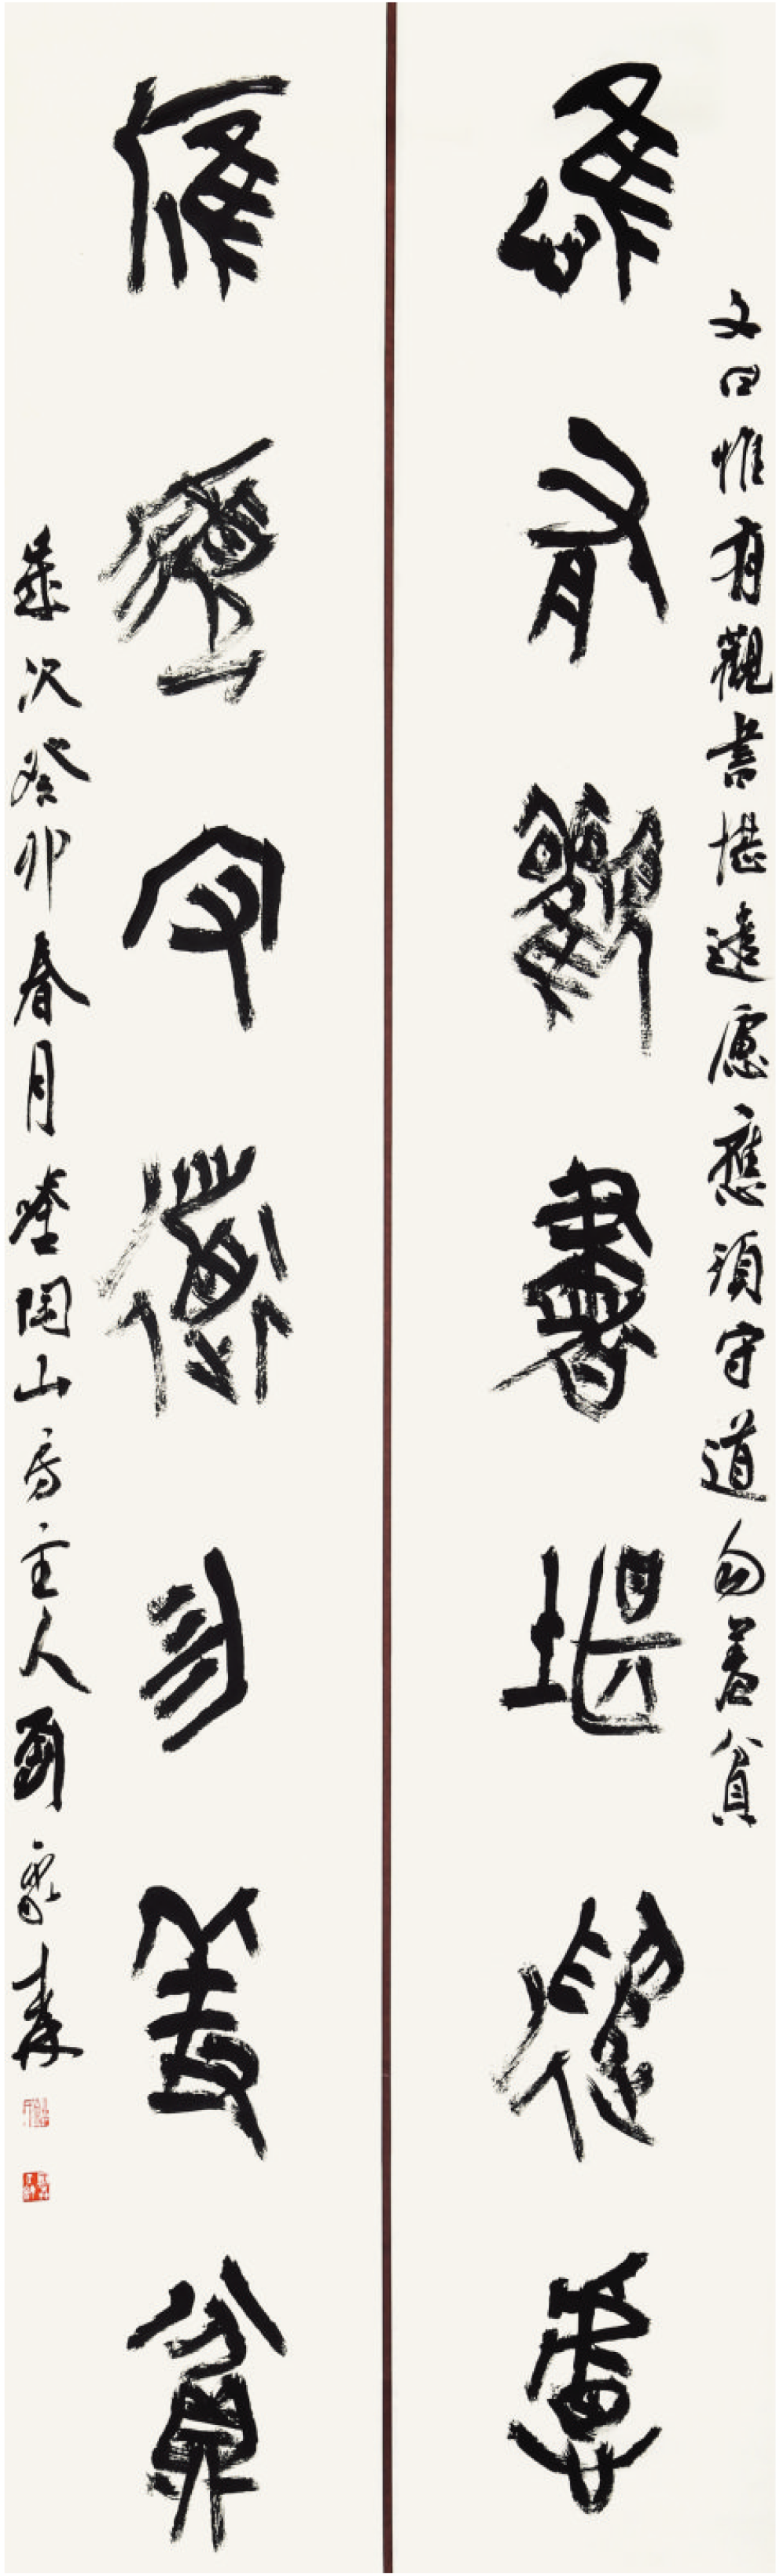 文曰惟有觀書堪遠慮應須守道勿羞貧
惟有觀書堪遠慮
應須守道勿羞貧
歲次癸卯春月於陶山房主人劉家森